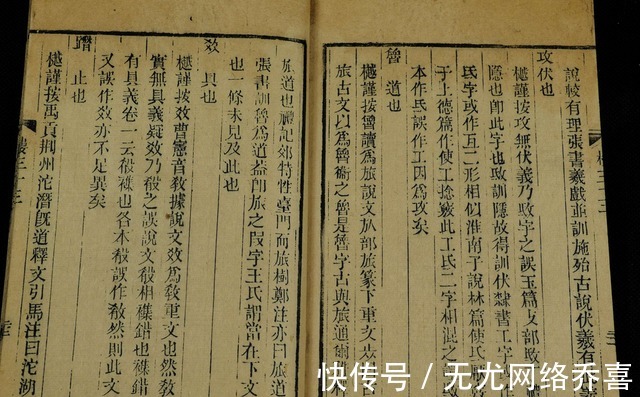 說較有理張書羲戲並訓施殆古說伏羲有
攻伏也
樾謹按攻無伏義乃㪁字之誤玉篇攴部㪁
隱也卽此字也㪁訓隱故得訓伏隸書工字
氏字或作互二形相似淮南子說林篇使氏
于上德篇作使工捻竅此工氏二字相混之
本作氏誤作工因爲攻矣
魯 道也
樾謹按魯讀爲旅說文㫃部旅篆下重文
旅古文以爲魯衞之魯是魯字古與旅通爾
旅道也禮記郊特牲臺門而旅樹鄭注亦曰旅道
張書訓魯爲道葢卽旅之叚字王氏謂當在下文
也一條未見及此也
效 具也
樾謹按效曹憲音敎據說文效爲敎重文也然
實無具義疑效乃殽之誤說文殽相襍錯也襍錯
有具義卷一云殽襍也各本殽誤作敎然則此文
又誤作效亦不足異矣
止也
樾謹按禹貢荊州沱潛旣道釋文引馬注曰沱湖
快传号／无尤网络乔喜